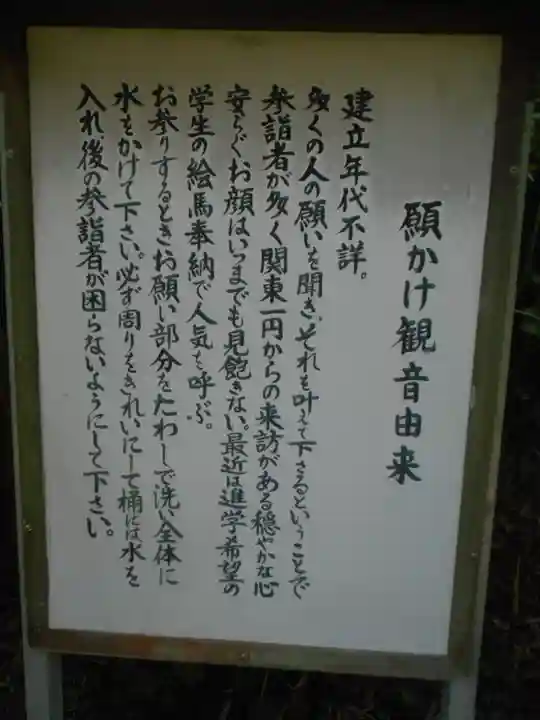 願かけ観音由来
建立年代不詳。
多くの人の願いを聞き、それを叶えて下さるということで
参詣者が多く関東一円からの来訪がある穏やかな心
安らぐお顔はいつまでも見飽きない。最近は進学希望の
学生の絵馬奉納で人気を呼ぶ。
お参りするときお願い部分をたわしで洗い全体に
水をかけて下さい。必ず周りをきれいにして桶には水を
入れ後の参詣者が困らないようにして下さい。